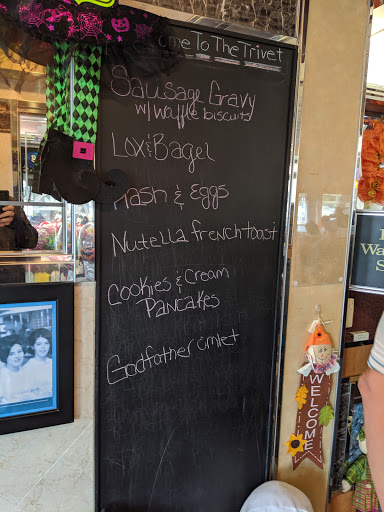 ome To The Trivet
Sausage Gravy
w/ waffle biscuits
Lox & Bagel
Hash & Eggs
Nutella french toast
Cookies & Cream
Pancakes
Godfather omlet
WELCOME